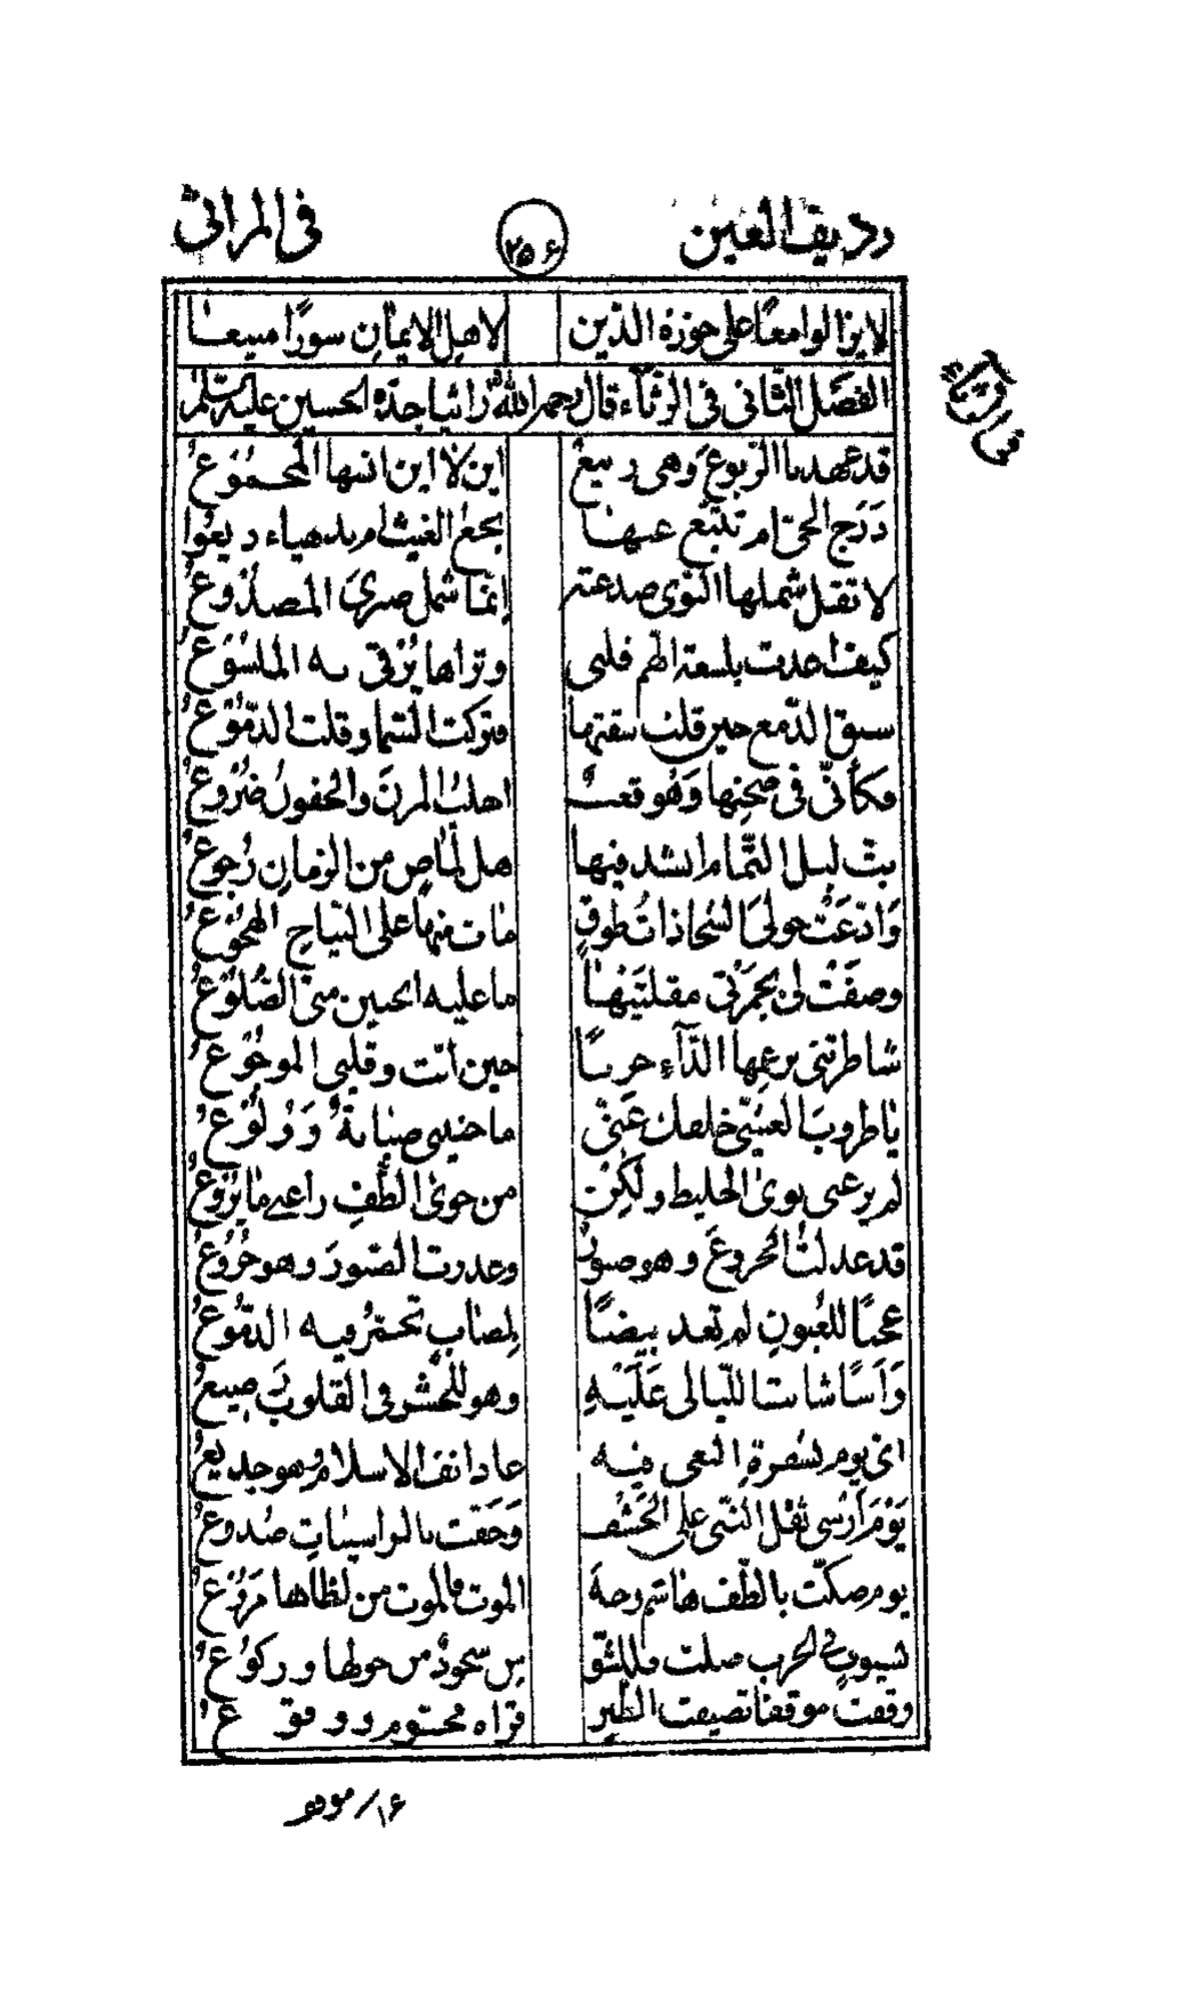 رديف العين ٢٥٦ في المراثي
لا يزالوا معًا على حوزة الدين لاهل الايمان سورًا منيعا
في الرثاء
الفصل الثاني في الرثاء قال رحمه الله راثيا جده الحسين عليه السلم
قد عهدنا الربوع وهي ربيع اين لا اين انسها المجموع
درج الحي ام تتبع عنها نجع الغيث ام بدهياء ريعوا
لا تقل شملها النوى صدعته انما شمل صبري المصدوع
كيف اعدت بلسعة الهم قلبي وتراها يرقى به الملسوع
سبق الدمع حين قلت سقتها فتركت السما وقلت الدموع
فكأني في صحنها وهو قعب احلب المزن والجفون ضروع
بت ليل التمام انشد فيها هل لماض من الزمان رجوع
وادعت حولي الشجا ذات طوق مات منها على النياح الهجوع
وصفت لي بجمرتي مقلتيها ما عليه انحنين مني الضلوع
شاطرتني بزعمها الداء حزنا حين انت وقلبي الموجوع
يا طروب العشي خلفك عني ما حنيني صبابة وولوع
لم يرعني نوى الخليط ولكن من جوى الطف راعني ما يروع
قد عذلت الجزوع وهو صبور وعذرت الصبور وهو جزوع
عجبا للعيون لم تغد بيضًا لمصاب تحمر فيه الدموع
وأسًا شابت الليالي عليه وهو للحشر في القلوب رضيع
اي يوم بشفرة البغي فيه عاد انف الاسلام وهو جديع
يوم ارسى ثقل النبي على الحتف وخفت بالراسيات صدوع
يوم صكت بالطف هاشم وجه الموت فالموت من لظاها مروع
بسيوف في الحرب صلت فللشو س سجود من حولها وركوع
وقفت موقفا تضيفت الطير قراه محتوم ووقوع